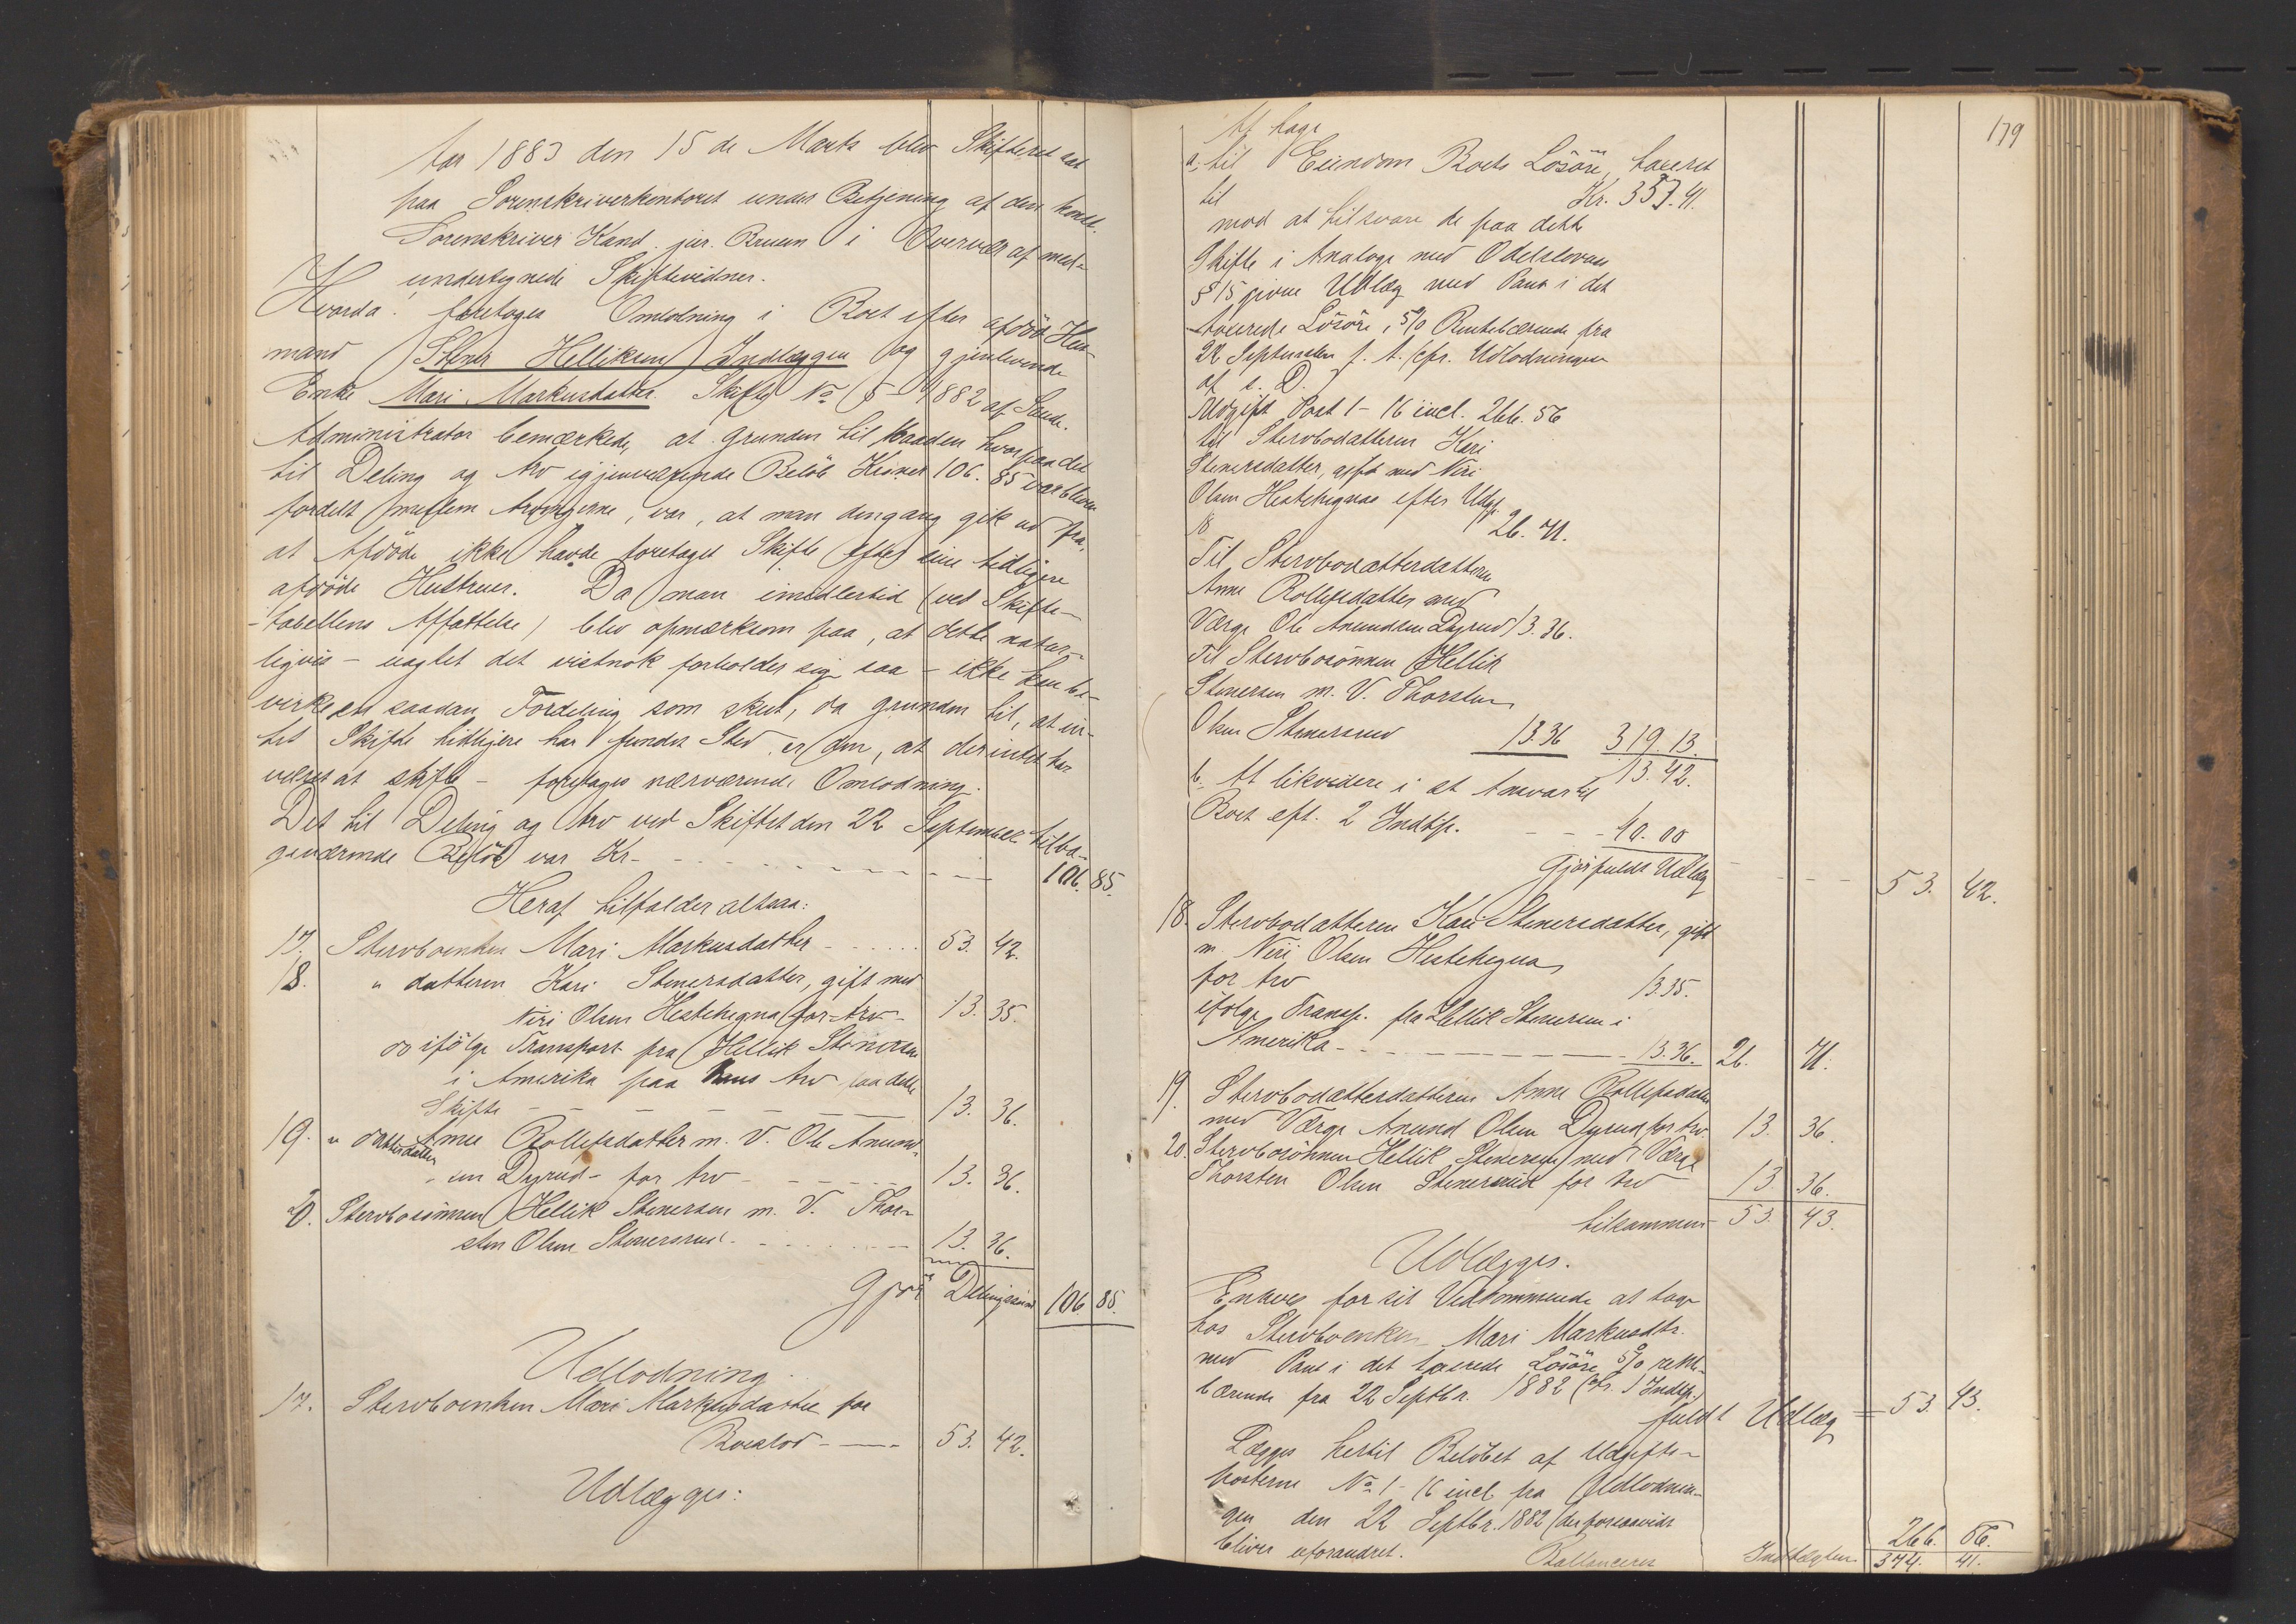 Aar 1883 den 15de Marts blev Skifteret sat
paa Sorenskriverkontoret under Betjening af den konst.
Sorenskriver Kand. jur. Bruun i Overvær af med-
undertegnede Skiftevidner.
Hvorda: foretoges Omlodning i Boet efter afdöde Huus-
mand Stener Helliksen Indlæggen og gjenlevende
Enke Mari Markusdatter. Skifte No 5 - 1882 af Sande.
Administrator bemærkede, at Grunden til Maaden hvorpaa det
til Deling og Arv igjenværende Belöb Kroner 106.85 var bleven
fordelt mellem Arvingerne, var, at man dengang gik ud fra,
at Afdöde ikke havde foretaget Skifte efter sine tidligere
afdöde Hustruer. Da man imidlertid (ved Skifte-
tabellens Affattelse) blev opmærksom paa, at dette natur-
ligvis - uagtet det vistnok forholder sig saa - ikke kan be-
virke en saadan Fordeling, som skeet, da Grunden til, at in-
tet Skifte tidligere har fundet Sted er den, at der intet har
været at skifte - foretages nærværende Omlodning.
Det til Deling og Arv ved Skiftet den 22 September tilba-
geværende Belöb var Kr. - - - 106.85.
Heraf tilfalder altsaa:
17. Stervboenken Mari Markusdatter - - - 53. 42.
18. " datteren Kari Stenersdatter, gift med
Niri Olsen Hestehegna for Arv - 13. 35.
og ifölge Transport fra Hellik Stenersen
i Amerika paa hans Arv paa dette
Skifte - - - 13. 36.
19. " datterdatter Anne Rollefsdatter m. V. Ole Anund-
sen Dyrud - for Arv - - - 13. 36.
20. Stervbosönnen Hellik Stenersen m. V. Thor-
sten Olsen Stenersrud - - - 13. 36.
Gjör Delingssum 106 85.
Udlodning.
17. Stervboenken Mari Markusdatter for
Boeslod - - - 53. 42.
Udlægges:
179
At tage
a. til Eiendom Boets Lösöre, taxeret
til Kr. 357.41.
mod at tilsvare de paa dette
Skifte i Analogi med Odelsloven
§ 15 givne Udlæg med Pant i det
taxerede Lösöre, 5% Rentebærende fra
22 September f. A. (cfr. Udlodningen
af s. D.
Udgift Post 1-16 incl. 266.56
til Stervbodatteren Kari
Stenersdatter, gift med Niri
Olsen Hestehegna efter Udg.
18 26.71.
Til Stervbodatterdatteren
Anne Rollefsdatter med
Værge Ole Anundsen Dyrud 13.36.
Til Stervbosönnen Hellik
Stenersen m. V. Thorsten
Olsen Stenersrud 13.36 319.13.
13.42.
b. At likvidere i at tilsvar til
Boet eft. 2 Indtp. - - - 40.00
Gjör fuldt Udlæg - - - 53. 42.
18. Stervbodatteren Kari Stenersdatter, gift
m. Niri Olsen Hestehegna
for Arv 13.35.
ifölge Transp. fra Hellik Stenersen i
Amerika - - - 13.36. 26. 71.
19. Stervbodatterdatteren Anne Rollefsdatter
med Værge Anund Olsen Dyrud for Arv. 13. 36.
20. Stervbosönnen Hellik Stenersen med Værge
Thorsten Olsen Stenersrud for Arv 13 36.
tilsammen 53. 43.
Udlægges.
Enhver for sit Vedkommende at tage
hos Stervboenken Mari Markusdtr.
med Pant i det taxerede Lösöre 5% rente-
bærende fra 22 Septbr. 1882 (cfr. 1 Indtp.)
fuldt Udlæg = 53. 43.
Lægges hertil Belöbet af Udgifts-
posterne No 1-16 incl. fra Udlodnin-
gen den 22 Septbr. 1882 (der forsaavidt
bliver uforandret. 266. 56.
Ballancerer Indtægten 374. 41.